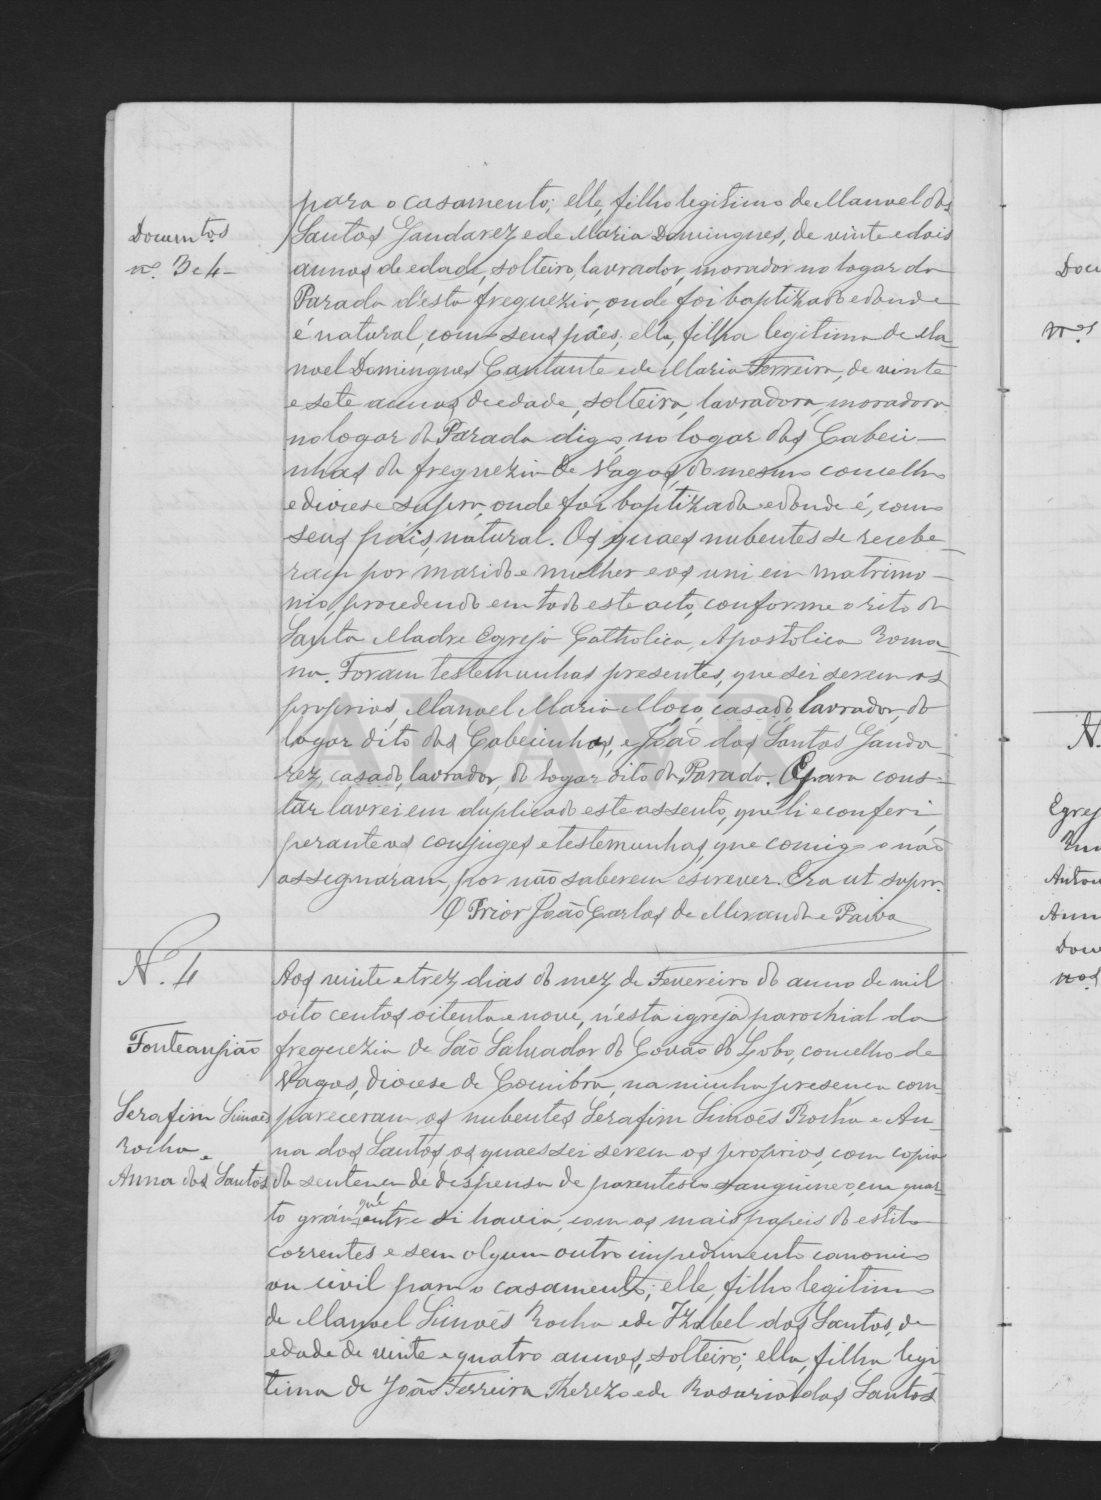 Documtos
nos. 3 e 4-
para o casamento; elle, filho legitimo de Manuel dos
Santos Gandarez e de Maria Domingues, de vinte e dois
annos de edade, solteiro, lavrador, morador no logar da
Parada d'esta freguezia, onde foi baptizado e donde
é natural, como seus páes; ella, filha legitima de Ma-
noel Domingues Cantante e de Maria Ferreira, de vinte
e sete annos de edade, solteira, lavradora, moradora
no logar da Parada digo, no logar das Cabeci-
nhas da freguezia de Vagos, do mesmo concelho
e diocese supra, onde foi baptizada e donde é, como
seus páis, natural. Os quaes nubentes se recebe-
ram por marido e mulher e os uni em matrimo-
nio, procedendo em todo este acto, conforme o rito da
Santa Madre Egreja Catholica, Apostolica Roma-
na. Foram testemunhas presentes, que sei serem os
proprios, Manoel Maria Moço, casado, lavrador, do
logar dito das Cabecinhas, e João dos Santos Ganda-
rez, casado, lavrador, do logar dito da Parada. E para cons-
tar lavrei em duplicado este assento, que li e conferi
perante os conjuges e testemunhas, que comigo não
assignáram, por não saberem escrever. Era ut supra.
O Prior João Carlos de Miranda e Paiva
N. 4
Fonteanjião
Serafim Simões
Rocha e
Anna dos Santos
Aos vinte e trez dias do mez de Fevereiro do anno de mil
oito centos oitenta e nove, n'esta igreja parochial da
freguezia de São Salvador do Covão do Lobo, concelho de
Vagos, diocese de Coimbra, na minha presença com-
pareceram os nubentes Serafim Simões Rocha e An-
na dos Santos, os quaes sei serem os proprios, com copia
da sentença de dispensa de parentesco sanguineo, em quar-
to gráu que entre si havia, com os mais papeis do estilo
correntes e sem algum outro impedimento canonico
ou civil para o casamento; elle, filho legitimo
de Manoel Simões Rocha e de Izabel dos Santos, de
edade de vinte e quatro annos, solteiro; ella, filha legi-
tima de João Ferreira Therezo e de Rosaria dos Santos
Docu
nos.
N.
Egrej
Anton
Ann
Docu
nos
ADAVR